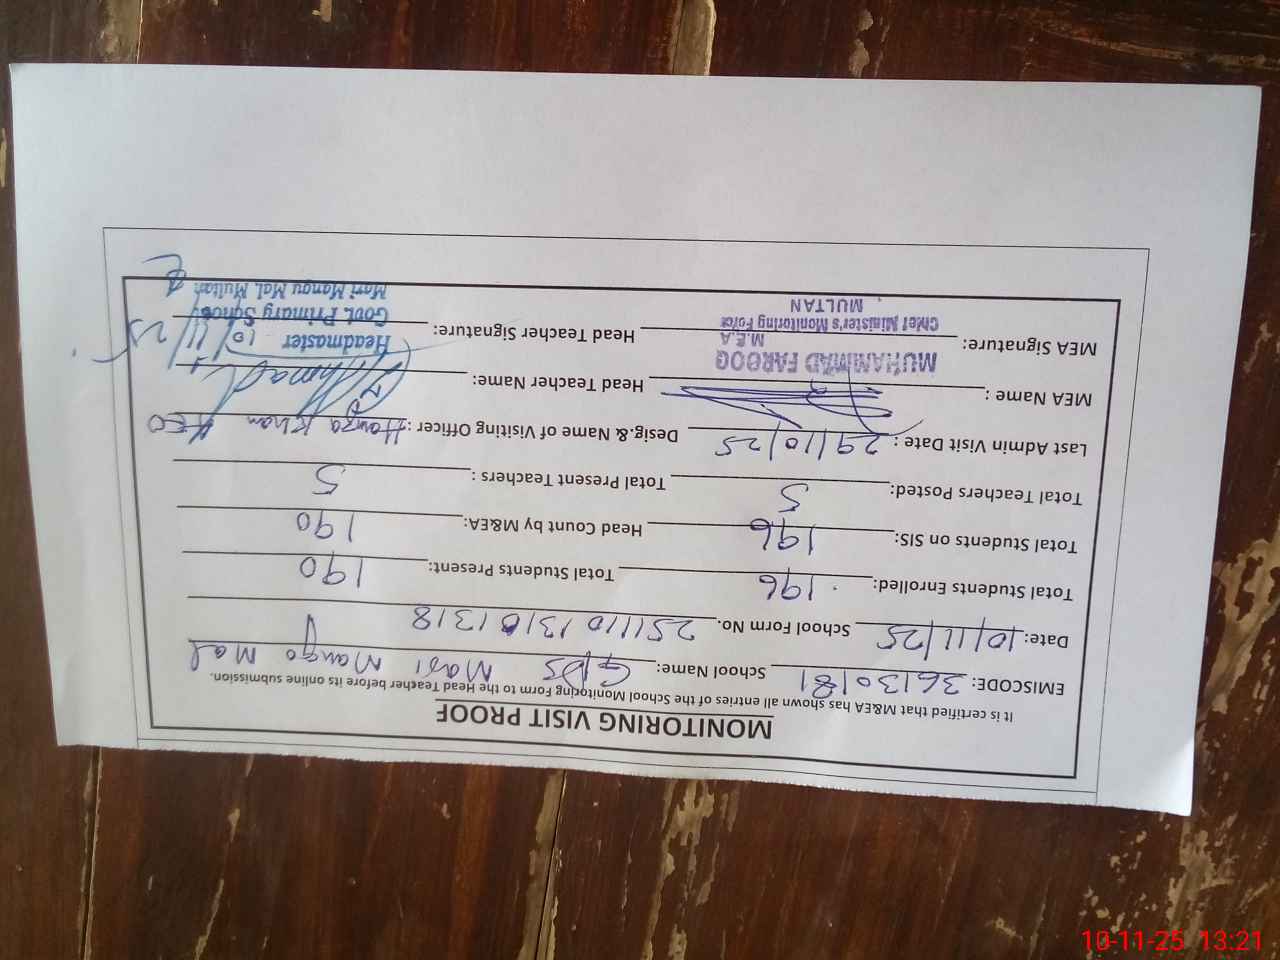 MONITORING VISIT PROOF
It is certified that M&EA has shown all entries of the School Monitoring Form to the Head Teacher before its online submission.
EMISCODE: 36130181 School Name: GPS Mari Mango Mal
Date: 10/11/25 School Form No. 25111013101318
Total Students Enrolled: 196 Total Students Present: 190
Total Students on SIS: 196 Head Count by M&EA: 190
Total Teachers Posted: 5 Total Present Teachers : 5
Last Admin Visit Date : 29/10/25 Desig,& Name of Visiting Officer : Hamza Khan AEO
MEA Name : Head Teacher Name:
MUHAMMAD FAROOQ
M.E.A
Chief Minister's Monitoring Force
MULTAN
MEA Signature: Head Teacher Signature:
10/11/25
Headmaster
Govt. Primary School
Mari Mangu Mal Multan
10-11-25 13:21